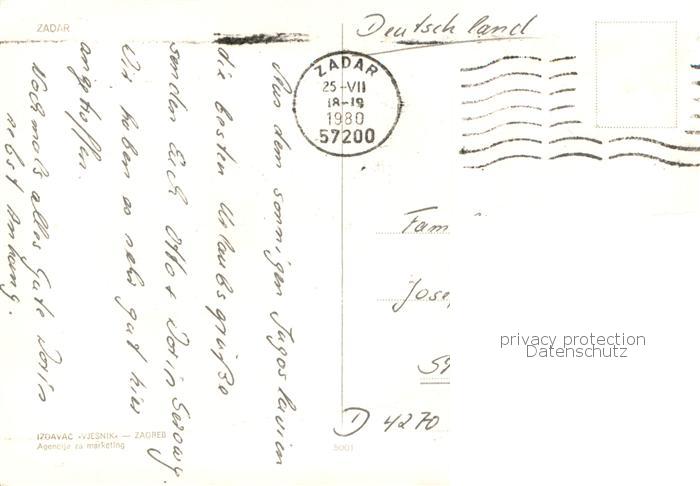 ZADAR
Deutschland
ZADAR
25-VII
18-19
1980
57200
Aus dem sonnigen Jugoslavien
die besten Urlaubsgrüße
senden Euch Otto + Doris
Wir haben es sehr gut hier
angetroffen.
Nochmals alles Gute Doris
nebst Anhang.
Fam
Jose
St
D 4270
privacy protection
Datenschutz
IZDAVAČ »VJESNIK« — ZAGREB
Agencija za marketing
5001